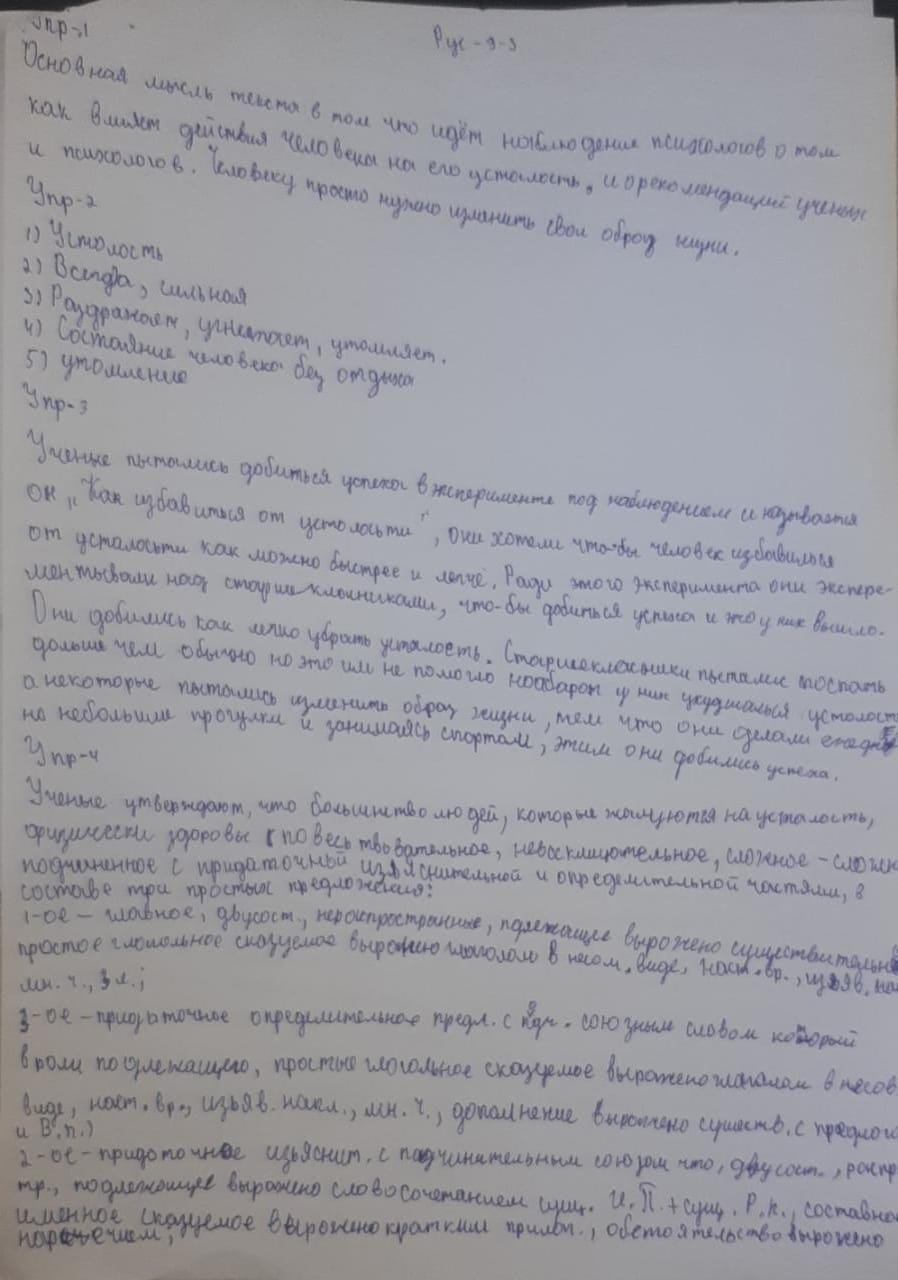 Упр-1
Рус-9-3
Основная мысль текста в том что идёт наблюдение психологов о том
как влияет действия человека на его усталость, и о рекомендаций ученых
и психологов. Человеку просто нужно изменить свои образ жизни.
Упр-2
1) Усталость
2) Всегда, сильная
3) Раздражает, угнетает, утомляет.
4) Состояние человека без отдыха
5) утомление
Упр-3
Ученые пытались добиться успеха в эксперименте под наблюдением и называется
он "Как избавиться от усталости", они хотели что-бы человек избавился
от усталости как можно быстрее и легче. Ради этого эксперимента они экспере-
ментывали над старшеклассниками, что-бы добиться успеха и это у них вышло.
Они добились как легко убрать усталость. Старшекласники пытались поспать
дольше чем обычно но это им не помогло наобарот у них ухудшалься усталость
а некоторые пытались изменить образ жизни, тем что они делали ежедн
но небольшие прогулки и занимаясь спортом, этим они добились успеха.
Упр-4
Ученые утверждают, что большинство людей, которые жалуются на усталость,
физически здоровы (повествовательное, невосклицательное, сложное - сложно
подчиненное с придаточной изъяснительной и определительной частями, в
составе три простых предложения:
1-ое - главное, двусост., нераспространные, подлежащее выражено существительны
простое глагольное сказуемое выражено глаголом в несов. виде, наст. вр., изъяв. на
мн. ч., 3 л.;
3-ое - придаточное определительное предл. с союзным словом который
в роли подлежащего, простые глагольное сказуемое выражено глаголом в несов
виде, наст. вр., изьяв. накл., мн. ч., дополнение выражено существ. с предлого
и В.п.)
2-ое - придаточное изъяснит. с подчинительным союзом что, двусост., распр
тр., подлежащее выражено словосочетанием сущ. И.П. + сущ. Р.п., составно
именное сказуемое выражено кратким прилаг., обстоятельство выражено
наречием;